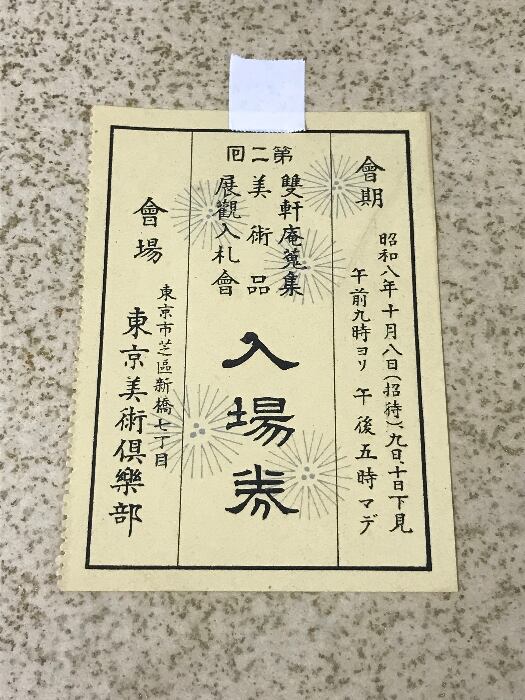 會期
昭和八年十月八日(招待)、九日、十日下見
午前九時ヨリ 午後五時マデ
第二回
雙軒庵蒐集
美術品
展觀入札會
入場券
會場
東京市芝區新橋七丁目
東京美術倶樂部